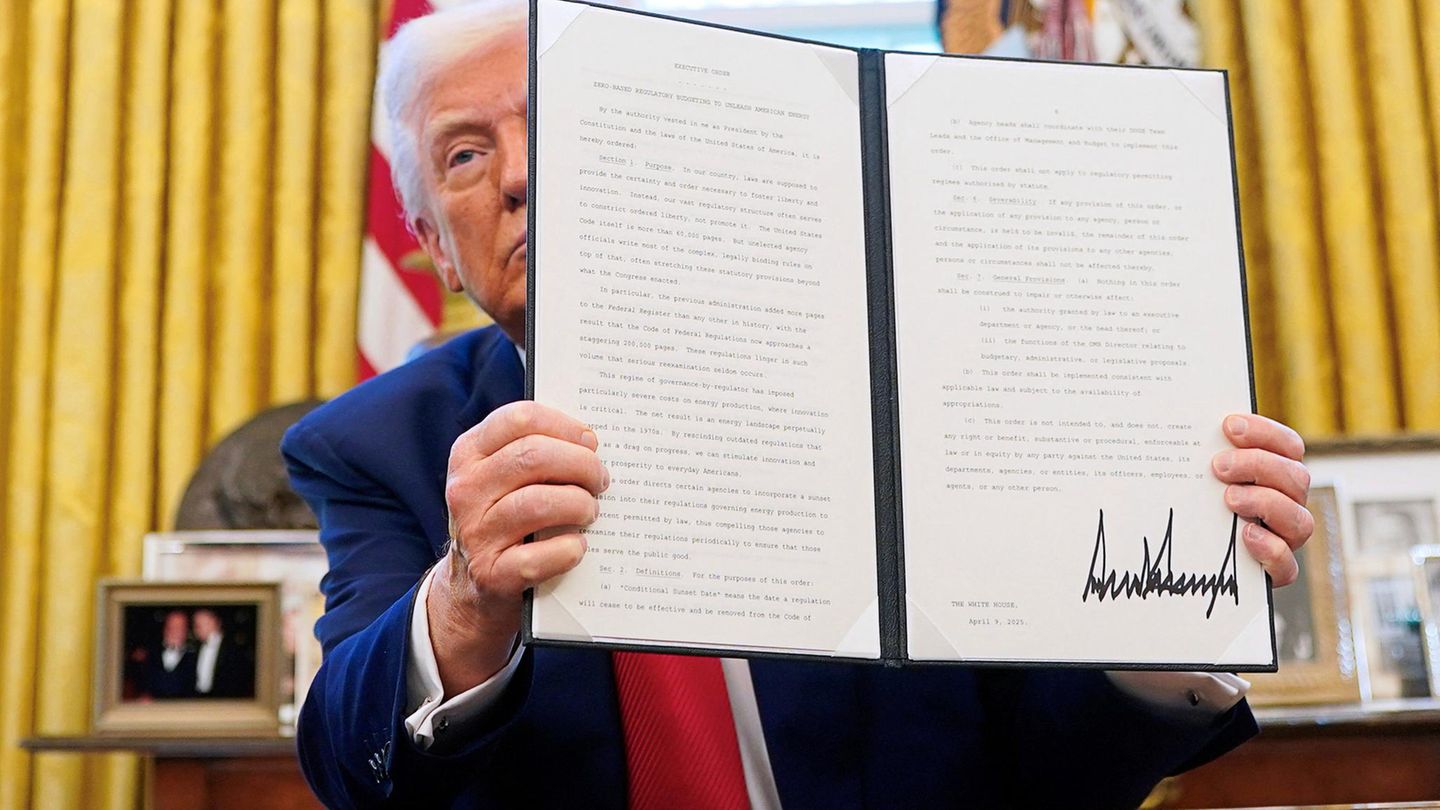 EXECUTIVE ORDER
- - - - - - -
ZERO-BASED REGULATORY BUDGETING TO UNLEASH AMERICAN ENERGY
By the authority vested in me as President by the
Constitution and the laws of the United States of America, it is
hereby ordered:
Section 1. Purpose. In our country, laws are supposed to
provide the certainty and order necessary to foster liberty and
innovation. Instead, our vast regulatory structure often serves
to constrict ordered liberty, not promote it. The United States
Code itself is more than 60,000 pages. But unelected agency
officials write most of the complex, legally binding rules on
top of that, often stretching these statutory provisions beyond
what the Congress enacted.
In particular, the previous administration added more pages
to the Federal Register than any other in history, with the
result that the Code of Federal Regulations now approaches a
staggering 200,000 pages. These regulations linger in such
volume that serious reexamination seldom occurs.
This regime of governance-by-regulator has imposed
particularly severe costs on energy production, where innovation
is critical. The net result is an energy landscape perpetually
apped in the 1970s. By rescinding outdated regulations that
as a drag on progress, we can stimulate innovation and
r prosperity to everyday Americans.
order directs certain agencies to incorporate a sunset
ision into their regulations governing energy production to
extent permitted by law, thus compelling those agencies to
reexamine their regulations periodically to ensure that those
les serve the public good.
Sec. 2. Definitions. For the purposes of this order:
(a) "Conditional Sunset Date" means the date a regulation
will cease to be effective and be removed from the Code of
(b) Agency heads shall coordinate with their DOGE Team
Leads and the Office of Management and Budget to implement this
order.
(c) This order shall not apply to regulatory permitting
regimes authorized by statute.
Sec. 6. Severability. If any provision of this order, or
the application of any provision to any agency, person or
circumstance, is held to be invalid, the remainder of this order
and the application of its provisions to any other agencies,
persons or circumstances shall not be affected thereby.
Sec. 7. General Provisions. (a) Nothing in this order
shall be construed to impair or otherwise affect:
(i) the authority granted by law to an executive
department or agency, or the head thereof; or
(ii) the functions of the OMB Director relating to
budgetary, administrative, or legislative proposals.
(b) This order shall be implemented consistent with
applicable law and subject to the availability of
appropriations.
(c) This order is not intended to, and does not, create
any right or benefit, substantive or procedural, enforceable at
law or in equity by any party against the United States, its
departments, agencies, or entities, its officers, employees, or
agents, or any other person.
THE WHITE HOUSE,
April 9, 2025.